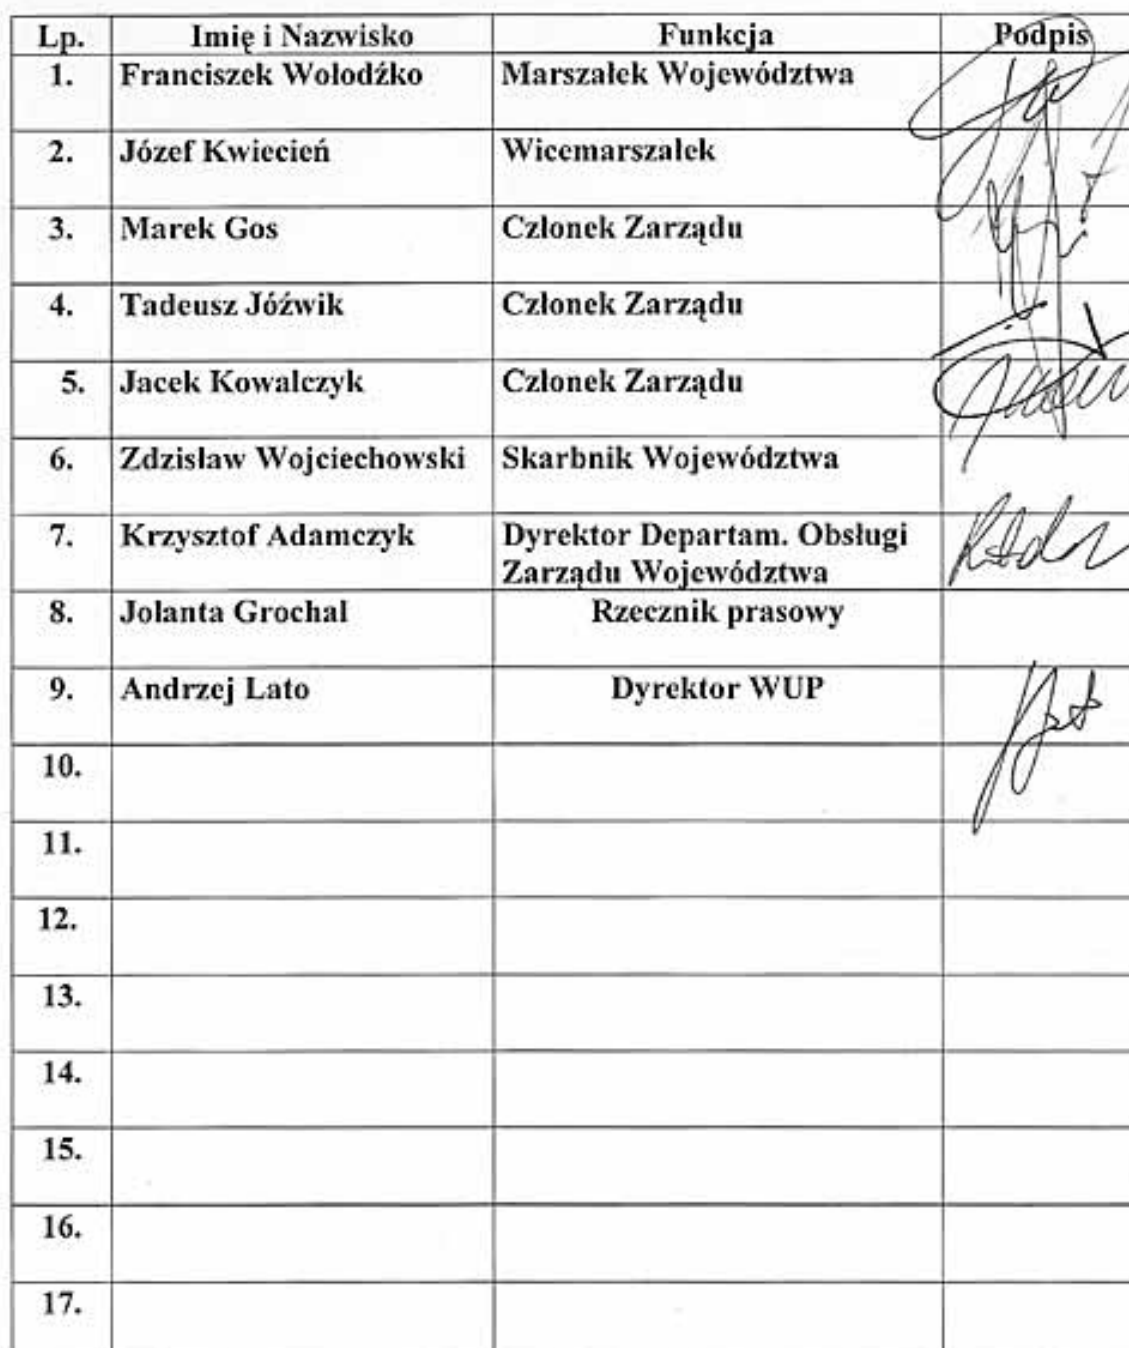 Lp. Imię i Nazwisko Funkcja Podpis
1. Franciszek Wołodźko Marszałek Województwa
2. Józef Kwiecień Wicemarszałek
3. Marek Gos Członek Zarządu
4. Tadeusz Jóźwik Członek Zarządu
5. Jacek Kowalczyk Członek Zarządu
6. Zdzisław Wojciechowski Skarbnik Województwa
7. Krzysztof Adamczyk Dyrektor Departam. Obsługi
Zarządu Województwa
8. Jolanta Grochal Rzecznik prasowy
9. Andrzej Lato Dyrektor WUP
10.
11.
12.
13.
14.
15.
16.
17.